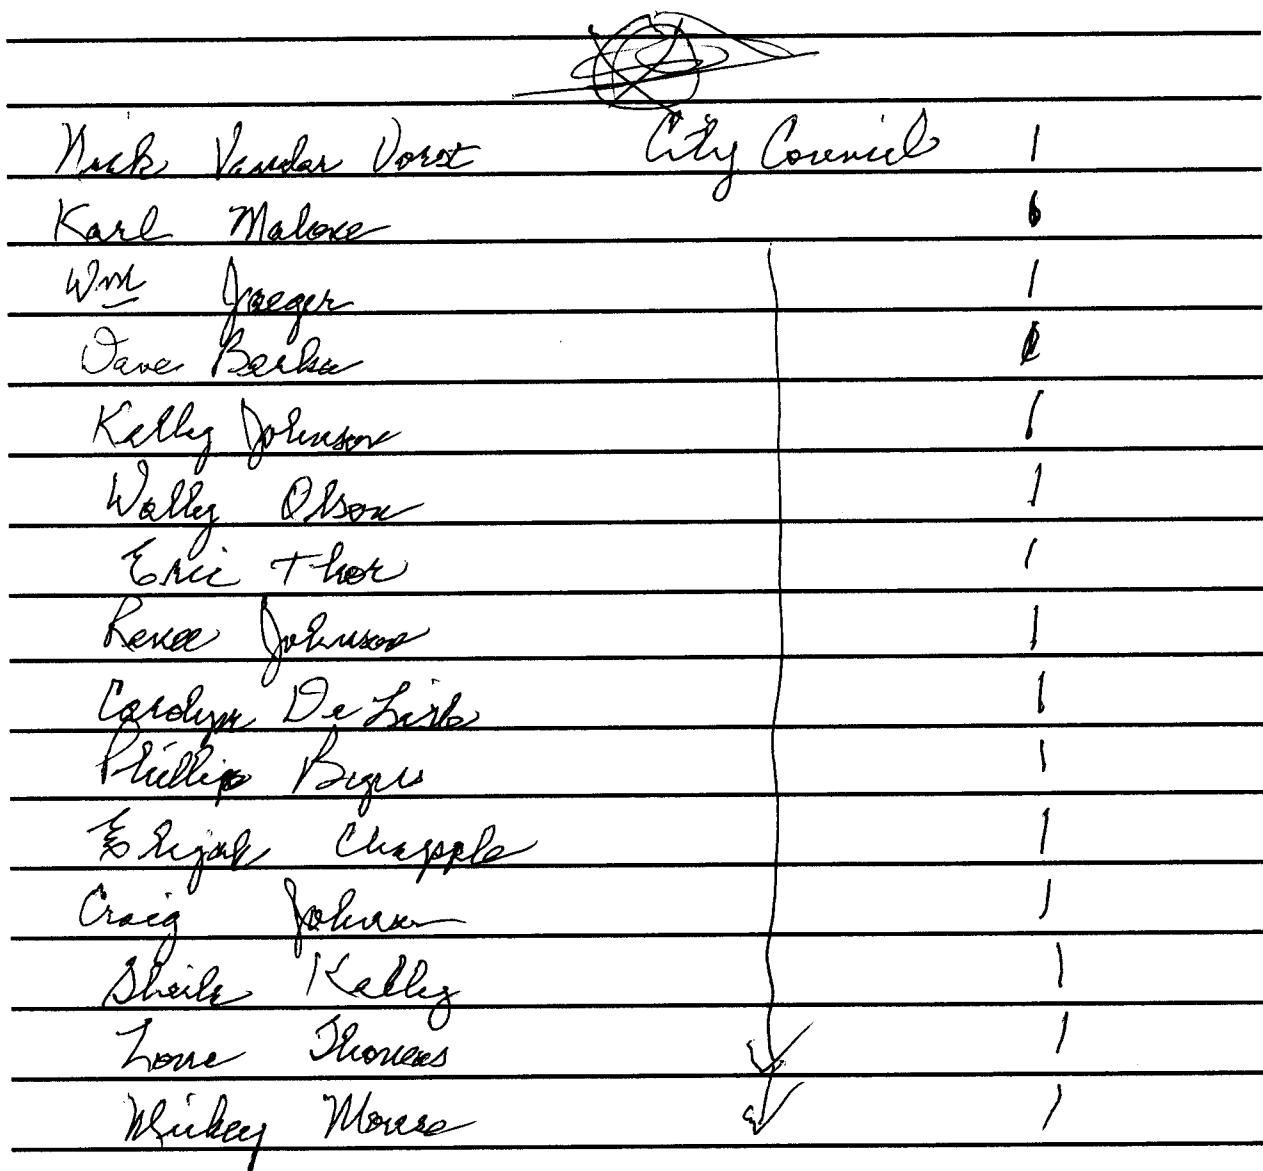 Nick Vander Vorst City Council 1
Karl Malone 1
Wm Jaeger 1
Dave Barka 1
Kelly Johnson 1
Wally Olson 1
Eric Thor 1
Renee Johnson 1
Carolyn De 1
Phillip 1
Elijah Chapple 1
Craig Johnson 1
Sheila Kelly 1
Thomas 1
Mickey Mouse 1